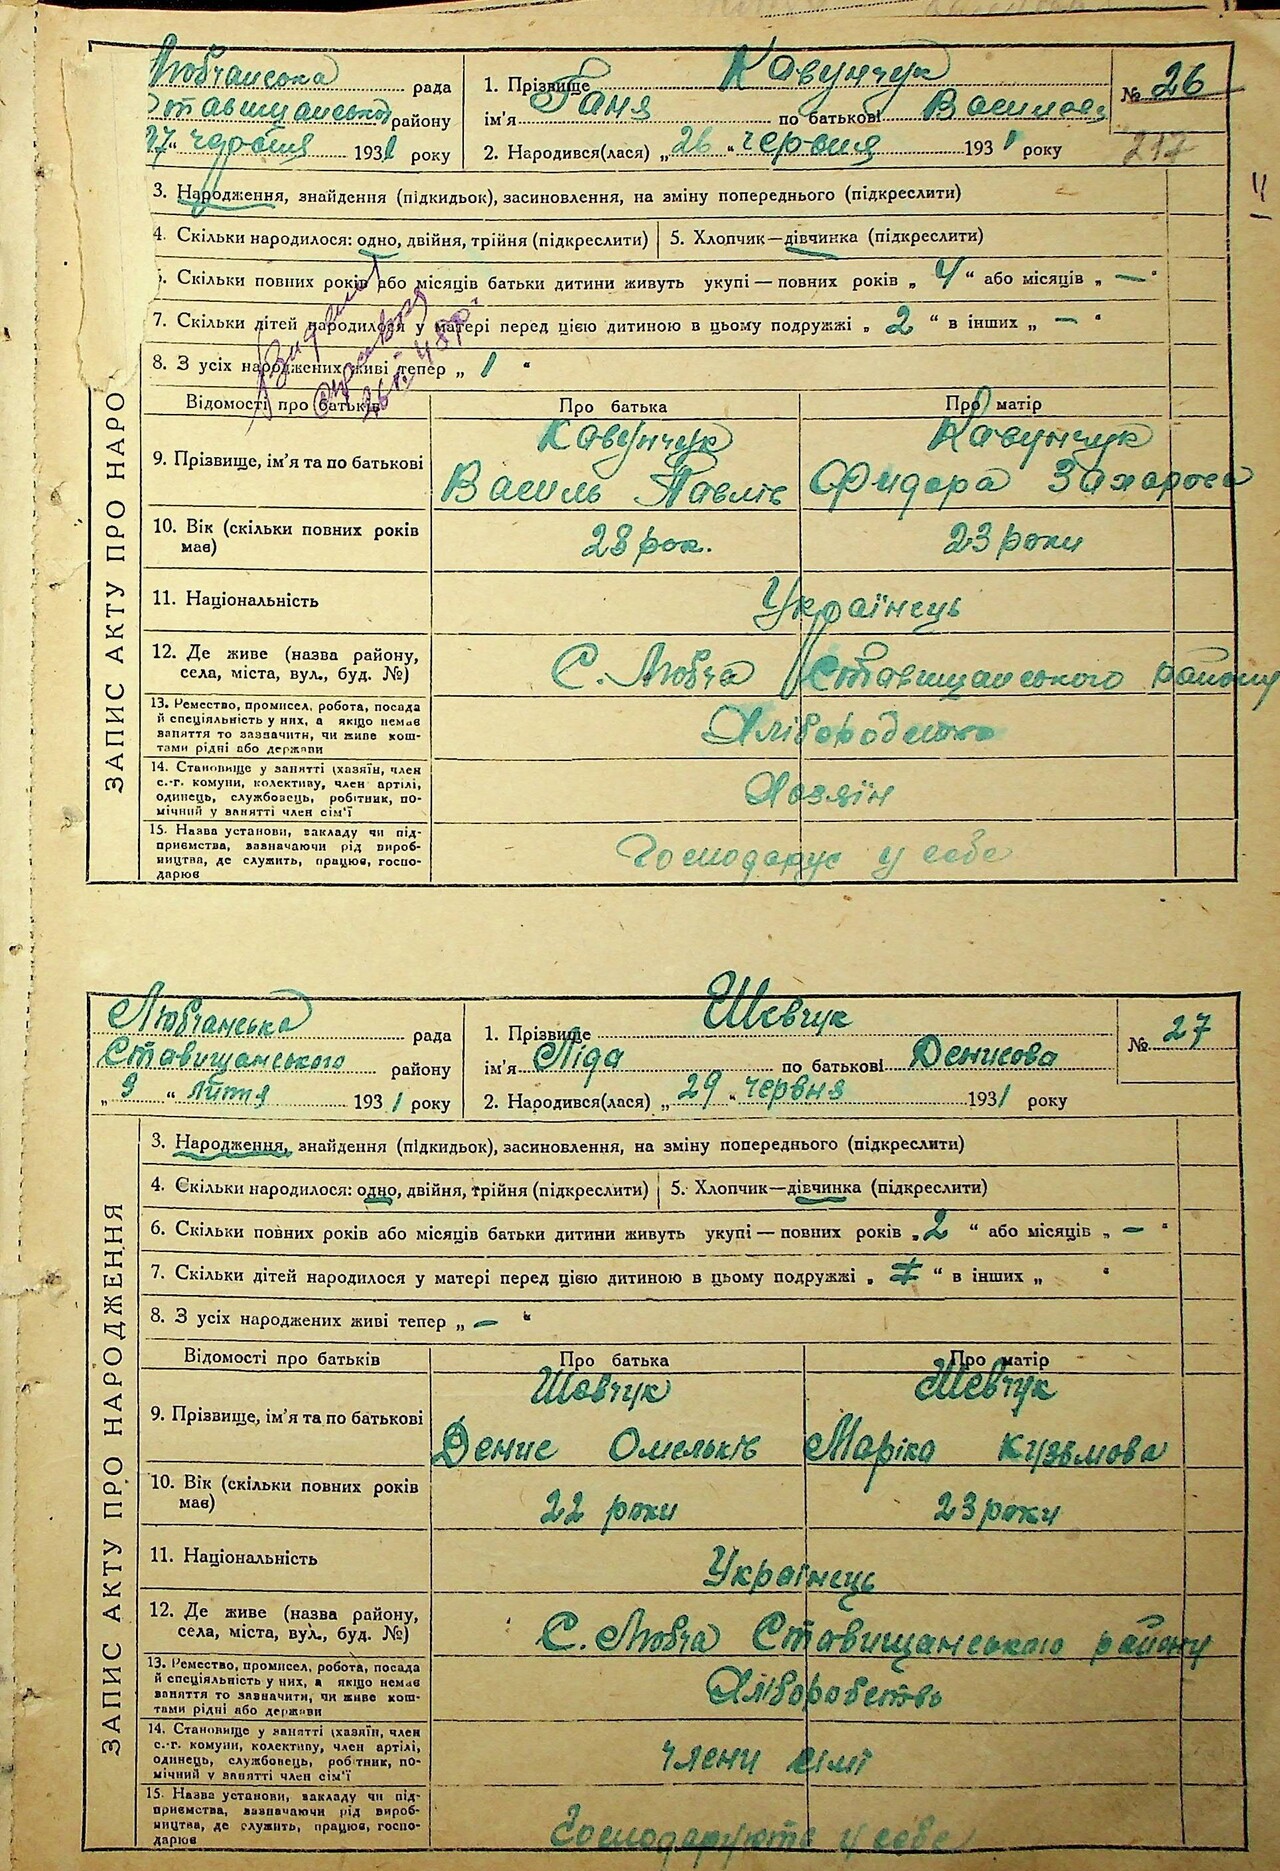 Любчанська рада
Ставищанського району
27 " червня 1931 року
1. Прізвище Кавунчук
ім'я Ганя по батькові Василева
2. Народився(лася) „ 26 " червня 1931 року
№ 26
217
3. Народження, знайдення (підкидьок), засиновлення, на зміну попереднього (підкреслити)
4. Скільки народилося: одно, двійня, трійня (підкреслити) 5. Хлопчик—дівчинка (підкреслити)
6. Скільки повних років або місяців батьки дитини живуть укупі — повних років „ 4 " або місяців „ — "
7. Скільки дітей народилося у матері перед цією дитиною в цьому подружжі „ 2 " в інших „ — "
8. З усіх народжених живі тепер „ 1 "
ЗАПИС АКТУ ПРО НАРО
Відомості про батьків Про батька Про матір
9. Прізвище, ім'я та по батькові
Кавунчук
Василь Павлів
Кавунчук
Фидора Захарова
10. Вік (скільки повних років
має)
28 рок. 23 роки
11. Національність Українець
12. Де живе (назва району,
села, міста, вул., буд. №)
С. Любча Ставищанського району
13. Ремество, промисел, робота, посада
й спеціяльність у них, а якщо немає
заняття то зазначити, чи живе кош-
тами рідні або держави
14. Становище у занятті (хазяїн, член
с.-г. комуни, колективу, член артілі,
одинець, службовець, робітник, по-
мічний у занятті член сім'ї
Хозяїн
15. Назва установи, закладу чи під-
приємства, зазначаючи рід вироб-
ництва, де служить, працює, госпо-
дарює
Господарує у себе
Любчанська рада
Ставищанського району
„ 9 " липня 1931 року
1. Прізвище Шевчук
ім'я Ліда по батькові Денисова
2. Народився(лася) „ 29 " червня 1931 року
№ 27
3. Народження, знайдення (підкидьок), засиновлення, на зміну попереднього (підкреслити)
4. Скільки народилося: одно, двійня, трійня (підкреслити) 5. Хлопчик—дівчинка (підкреслити)
6. Скільки повних років або місяців батьки дитини живуть укупі — повних років „ 2 " або місяців „ — "
7. Скільки дітей народилося у матері перед цією дитиною в цьому подружжі „ " в інших „ "
8. З усіх народжених живі тепер „ — "
ЗАПИС АКТУ ПРО НАРОДЖЕННЯ
Відомості про батьків Про батька Про матір
9. Прізвище, ім'я та по батькові
Шевчук
Денис Омельків
Шевчук
Маріка Кузьмова
10. Вік (скільки повних років
має)
22 роки 23 роки
11. Національність Українець
12. Де живе (назва району,
села, міста, вул., буд. №)
С. Любча Ставищанського району
13. Ремество, промисел, робота, посада
й спеціяльність у них, а якщо немає
заняття то зазначити, чи живе кош-
тами рідні або держави
Хліборобство
14. Становище у занятті (хазяїн, член
с.-г. комуни, колективу, член артілі,
одинець, службовець, робітник, по-
мічний у занятті член сім'ї
члени сімї
15. Назва установи, закладу чи під-
приємства, зазначаючи рід вироб-
ництва, де служить, працює, госпо-
дарює
Господарюють у себе